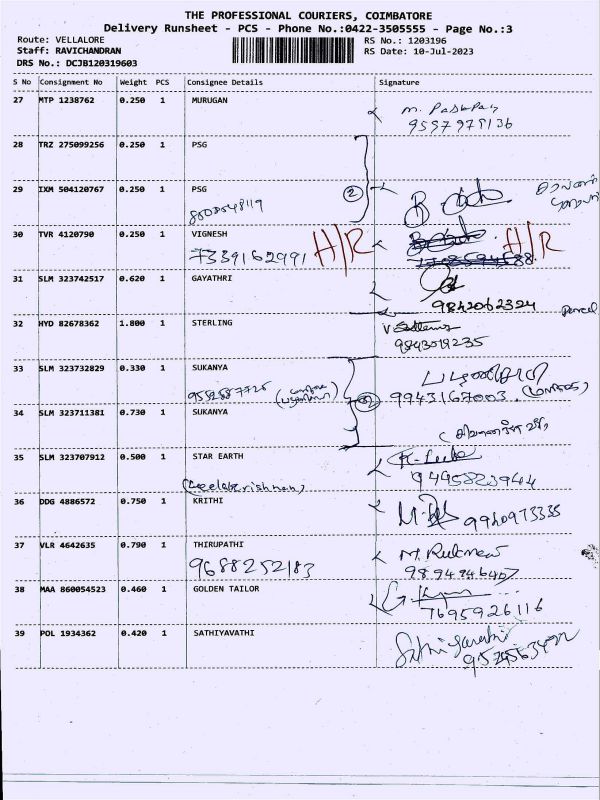 THE PROFESSIONAL COURIERS, COIMBATORE
Delivery Runsheet - PCS - Phone No.:0422-3505555 - Page No.:3
Route: VELLALORE
RS No.: 1203196
Staff: RAVICHANDRAN
RS Date: 10-Jul-2023
DRS No.: DCJB120319603
S No Consignment No Weight PCS Consignee Details Signature
27 MTP 1238762 0.250 1 MURUGAN
28 TRZ 275099256 0.250 1 PSG
29 IXM 504120767 0.250 1 PSG
2
30 TVR 4120790 0.250 1 VIGNESH
7339162991 H/R H/R
31 SLM 323742517 0.620 1 GAYATHRI
9842062324
32 HYD 82678362 1.800 1 STERLING
Parcel
9843019235
33 SLM 323732829 0.330 1 SUKANYA
9943167003
34 SLM 323711381 0.730 1 SUKANYA
35 SLM 323707912 0.500 1 STAR EARTH
(Leelakrishnan)
9495823944
36 DDG 4886572 0.750 1 KRITHI
9940973335
37 VLR 4642635 0.790 1 THIRUPATHI
9688252183
38 MAA 860054523 0.460 1 GOLDEN TAILOR
7695926116
39 POL 1934362 0.420 1 SATHIYAVATHI